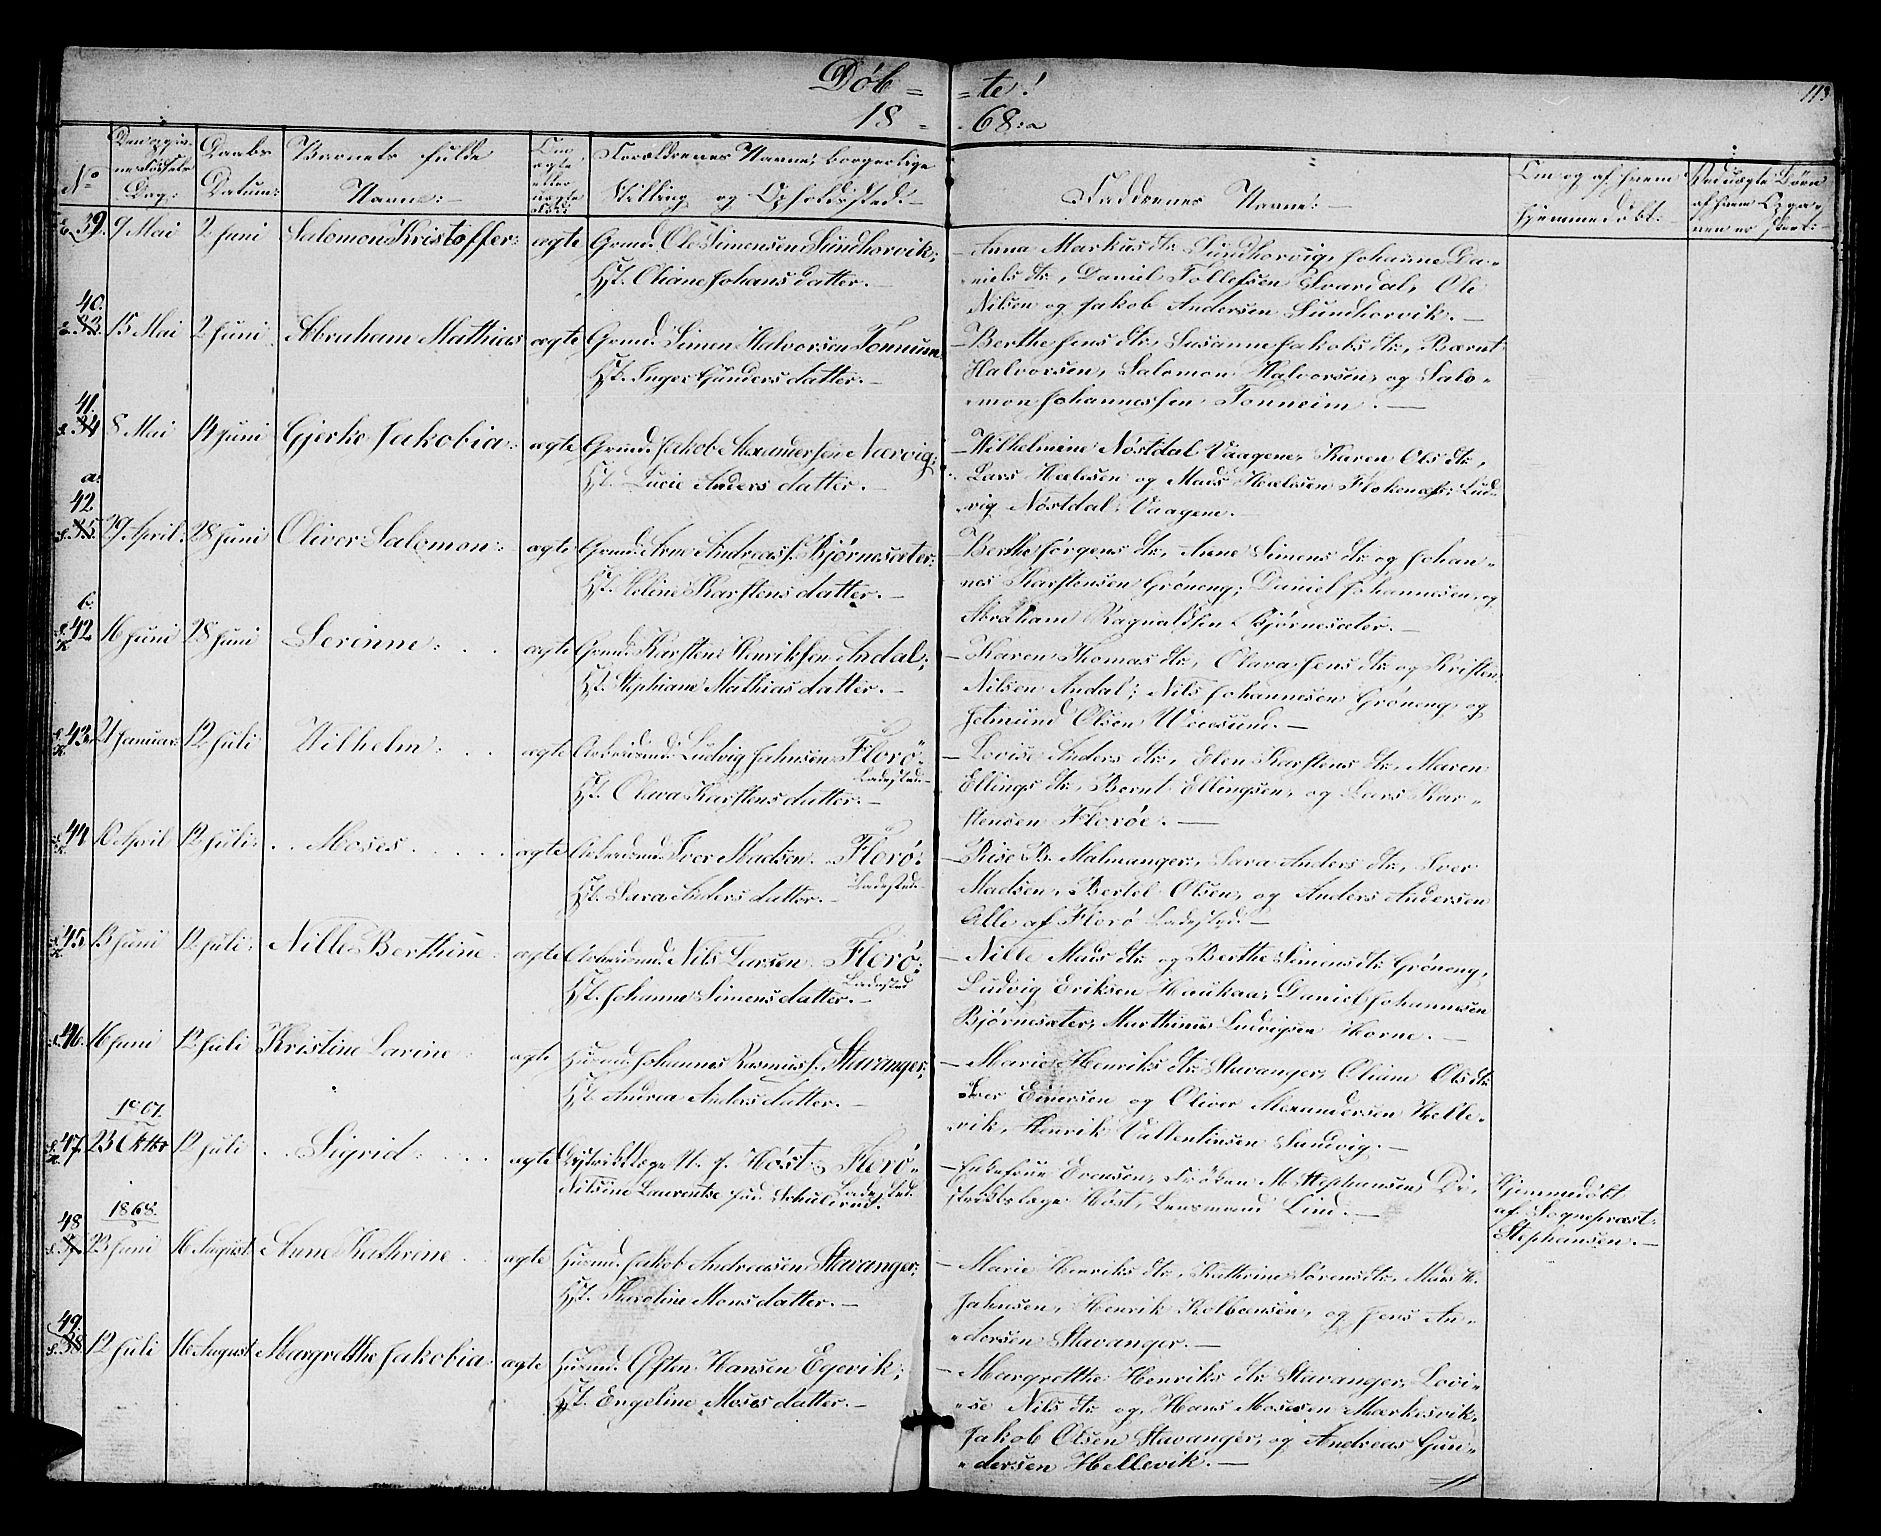 Døb = = te!
18 = 68:
113
No
Den opgivne Fødsels Dag:
Daabs Datum:
Barnets fulde Navne:
Om ægte eller uægte
Forældrenes Navne, borgerlige Stilling og Opholdssted:
Faddernes Navne:
Om og af hvem hjemmedøbt:
Ved uægte Børn af hvem Opga- ven er skeet:
39. 9 Mai 2 Juni Salomon Kristoffer: ægte Grmd. Ole Simensen Sundhorvik;
Ht. Oliane Johansdatter.
Anna Markusdtr. Sundhorvig, Johanne Da-
nielsdtr., Daniel Tollefsen Svardal, Ole
Nilsen og Jakob Andersen Sundhorvik.
40. 33. 15 Mai 2 Juni Abraham Mathias ægte Grmd. Simen Halvorsen Tonnum
Ht. Inger Gundersdatter.
Berthe Jensdtr., Susanne Jakobsdtr., Bærnt
Halvorsen, Salomon Halvorsen, og Salo-
mon Johannessen Tonheim.
41. 34 8 Mai 14 Juni Gjerke Jakobia: ægte Grmd. Jakob Alexandersen Nærvig;
Ht. Lucie Andersdatter.
Wilhelmine Nøstdal Vaagene, Karen Olsdtr.,
Lars Hælesen og Mads Hælesen Flokenæs; Lud-
vig Nøstdal, Vaagene.
a. 42 35. 29 April: 28 Juni Oliver Salomon: ægte Grmd. Arne Andreas. Bjørnesæter:
Ht. Karstensdatter.
Berthe Jørgensdtr., Anne Simensdtr. og Johan-
nes Karstensen Grøneng; Daniel Johannesen, og
Abraham Ragnaldsen Bjørnesæter.
b. 42 16 Juni 28 Juni Serinne: ægte Grmd. Karsten Henriksen Andal;
Ht. Stephiane Mathiasdatter.
Karen Thomasdtr., Olava Jensdtr. og Kristen
Nilsen Andal; Nils Johannesen Grøneng, og
Jetmund Olsen Veiesund.
43. 21 Januar: 12 Juli Vilhelm: ægte Arbeidsmd. Ludvig Jahnsen Florö
Ladested
Ht. Olava Karstensdatter.
Lovise Andersdtr., Elen Karstensdtr., Maren
Ellingsdtr., Bernt Ellingsen, og Lars Kar-
stensen Florøe.
44 10 April 12 Juli: Moses ægte Arbeidsmd. Iver Madsen Florö
Ladested
Ht. Sara Andersdatter.
Elise B. Malmanger, Sara Andersdtr., Iver
Madsen, Bertel Olsen, og Anders Andersen
Alle af Florø Ladested.
45. 13 Juni 12 Juli: Nille Berthine ægte Arbeidsmd. Nils Larsen Florø:
Ladested
Ht. Johanne Simensdatter.
Nille Madsdtr. og Berthe Simensdtr. Grøneng,
Ludvig Eriksen Haukaa, Daniel Johannesen
Bjørnesæter, Marthinus Ludvigsen Horne.
46. 16 Juni 12 Juli Kristine Larine ægte Husmd. Johannes Rasmus. Stavanger;
Ht. Andrea Andersdatter.
Marie Henriksdtr. Stavanger, Oliane Olsdtr.
Iver Einersen og Oliver Alexandersen Helle-
vik, Henrik Vallentinsen Sandvig.
1867.
47. 23 Oktbr 12 Juli Sigrid: ægte Distriktslæge N. J. Høst, Florø
Ladested
Nilsine Laurentse fød Schulerud.
Enkefrue Evensen, Frøken M. Stephansen, Di-
striktslæge Høst, Lensmand Lind.
Hjemmedøbt
af Sognepræst
Stephansen.
1868.
48 37. 23 Juni 16 August Anne Kathrine ægte Husmd. Jakob Andreasen Stavanger;
Ht. Karoline Monsdatter.
Marie Henriksdtr., Kathrine Sørensdtr., Mads K.
Jahnsen, Henrik Kolbeensen, og Jens An-
dersen Stavanger.
49. 38 12 Juli 16 August Margrethe Jakobia ægte Husmd. Østen Hansen Egevik;
Ht. Engeline Mosesdatter.
Margrethe Henriksdtr. Stavanger, Lovi-
se Nilsdtr. og, Hans Mosesen Mærkesvik,
Jakob Olsen Stavanger, og Andreas Gun-
dersen Hellevik.